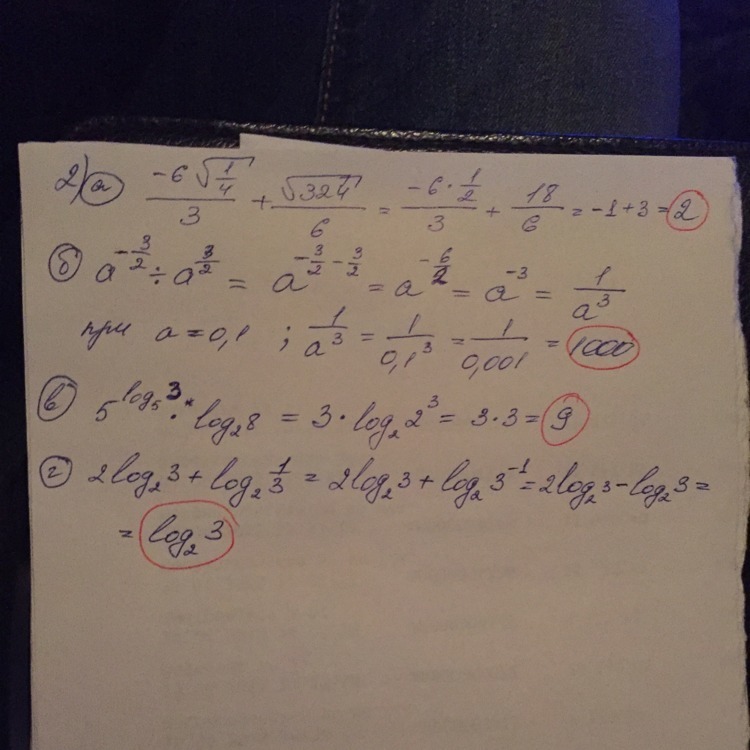 2) а) (-6√(1/4))/3 + √324/6 = (-6·1/2)/3 + 18/6 = -1+3 = 2
б) a^(-3/2) ÷ a^(3/2) = a^(-3/2 - 3/2) = a^(-6/2) = a^(-3) = 1/a³
при a = 0,1 ; 1/a³ = 1/0,1³ = 1/0,001 = 1000
в) 5^(log₅3) · log₂8 = 3 · log₂2³ = 3·3 = 9
г) 2log₂3 + log₂(1/3) = 2log₂3 + log₂3⁻¹ = 2log₂3 - log₂3 =
= log₂3